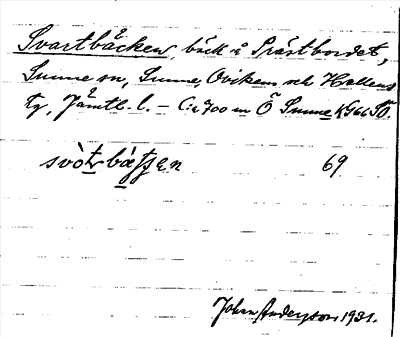 Svartbäcken, bäck i Prästbordet,
Sunne sn, Sunne, Ovikens och Hallens
tg, Jämtl. l. – C:a 700 m Ö Sunne k:a
svòtrbät̯t̯ʃen 69
John Anderson 1931.